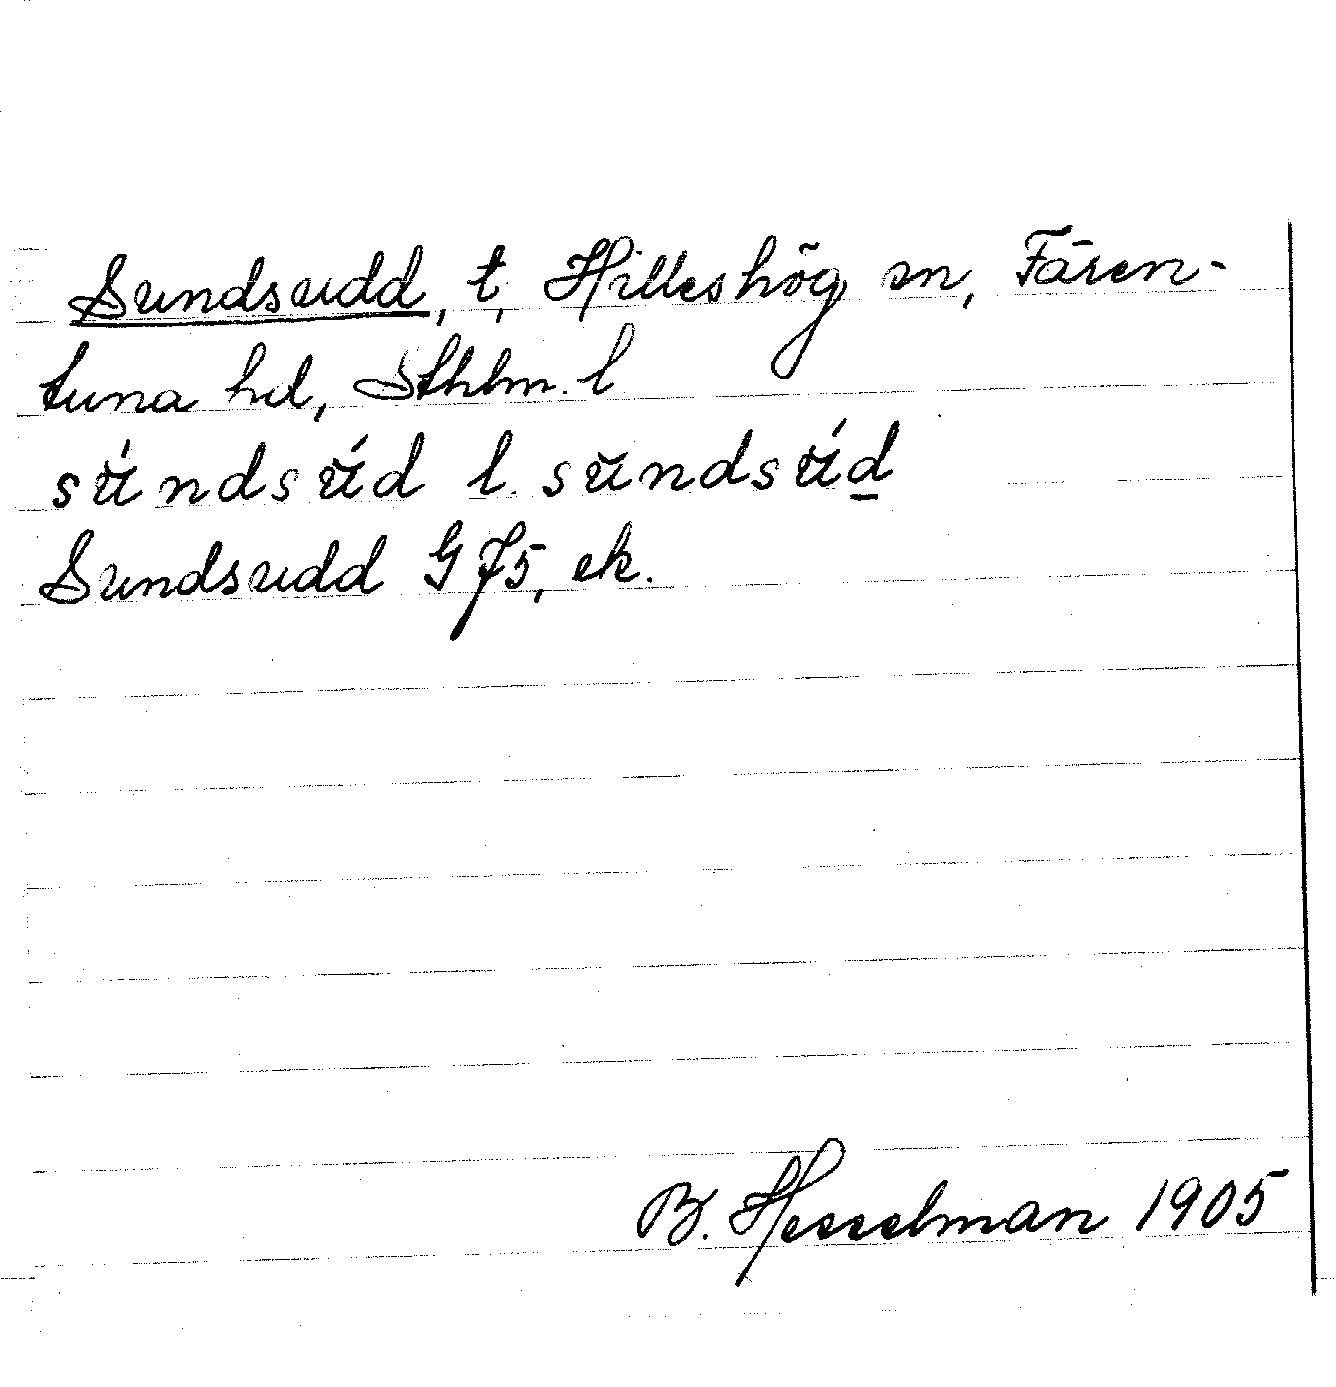 Sundsudd, t, Hilleshög sn, Fären-
tuna hd, Sthlm. l
sŭ́ndsŭ́d l. sŭndsŭ́d̲
Sundsudd G 75, ek.
B. Hesselman 1905